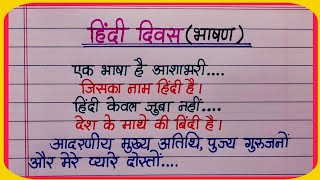 हिंदी दिवस (भाषण)
एक भाषा है आशाभरी....
जिसका नाम हिंदी है।
हिंदी केवल जुबा नहीं....
देश के माथे की बिंदी है।
आदरणीय मुख्य अतिथि, पुज्य गुरुजनों
और मेरे प्यारे दोस्तों....